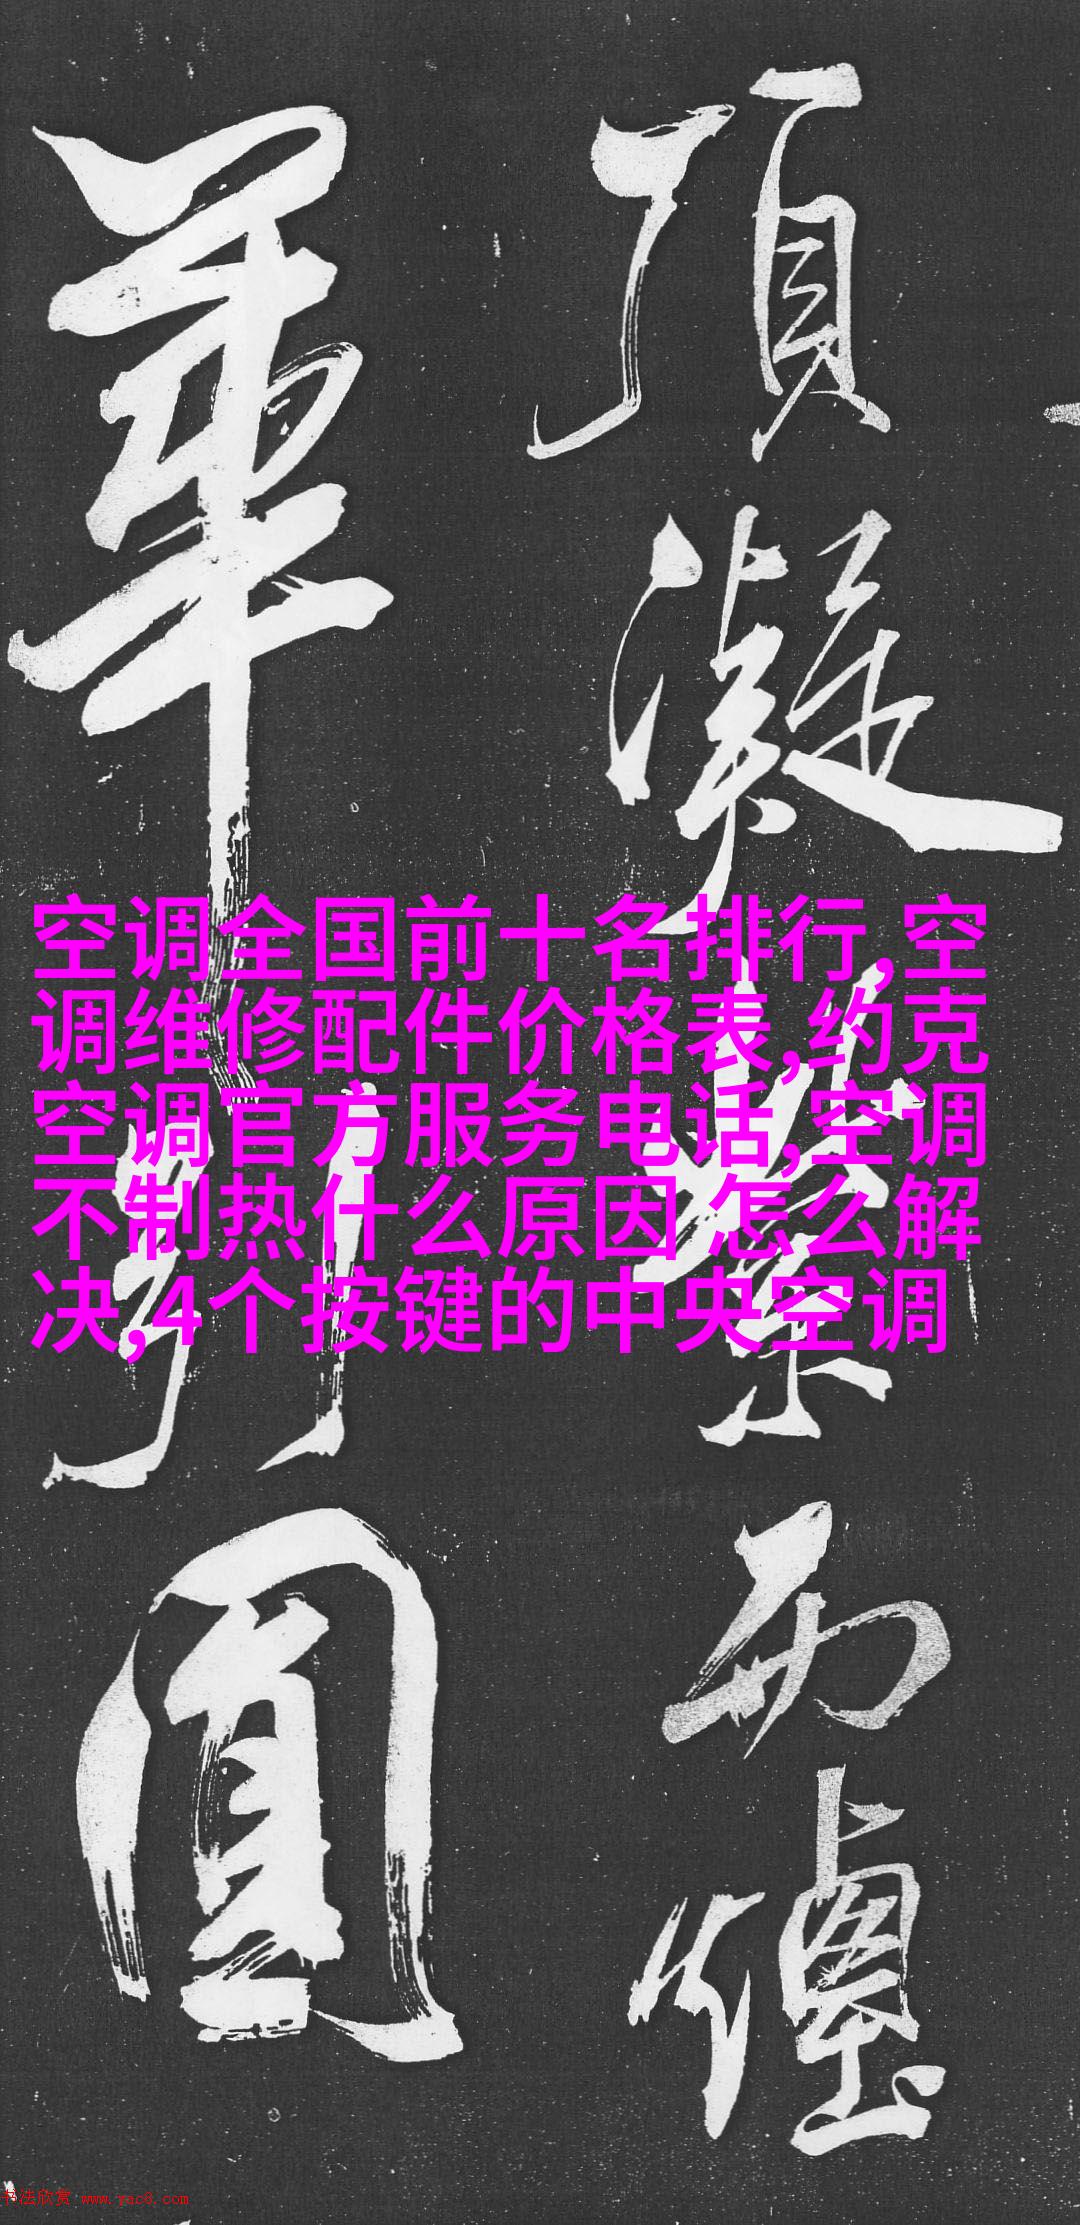 空调全国前十名排行,空
调维修配件价格表,约克
空调官方服务电话,空调
不制热什么原因 怎么解
决,4个按键的中央空调
頂
凝
紫
而
煙
華
引
圓
书法欣赏 www.yac8.com